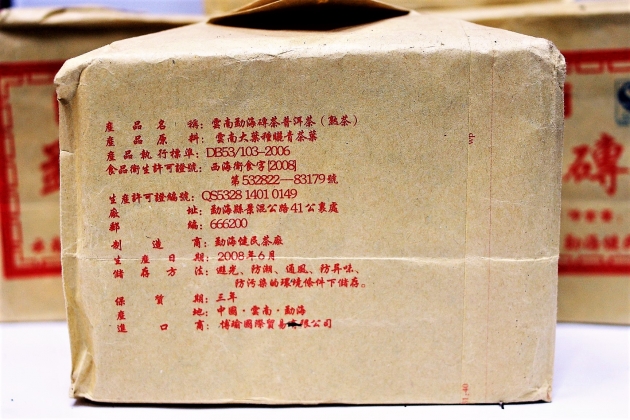 產品名稱：雲南勐海磚茶普洱茶（熟茶）
產品原料：雲南大葉種曬青茶葉
產品執行標準：DB53/103-2006
食品衛生許可證號：西海衛食字[2008]
第532822—83179號
生產許可證編號：QS5328 1401 0149
廠址：勐海縣景混公路41公裏處
郵編：666200
制造商：勐海健民茶廠
生產日期：2008年6月
儲存方法：避光、防潮、通風、防异味、
防污染的環境條件下儲存。
保質期：三年
產地：中國·雲南·勐海
進口商：博瑜國際貿易有限公司
磚
勐海健